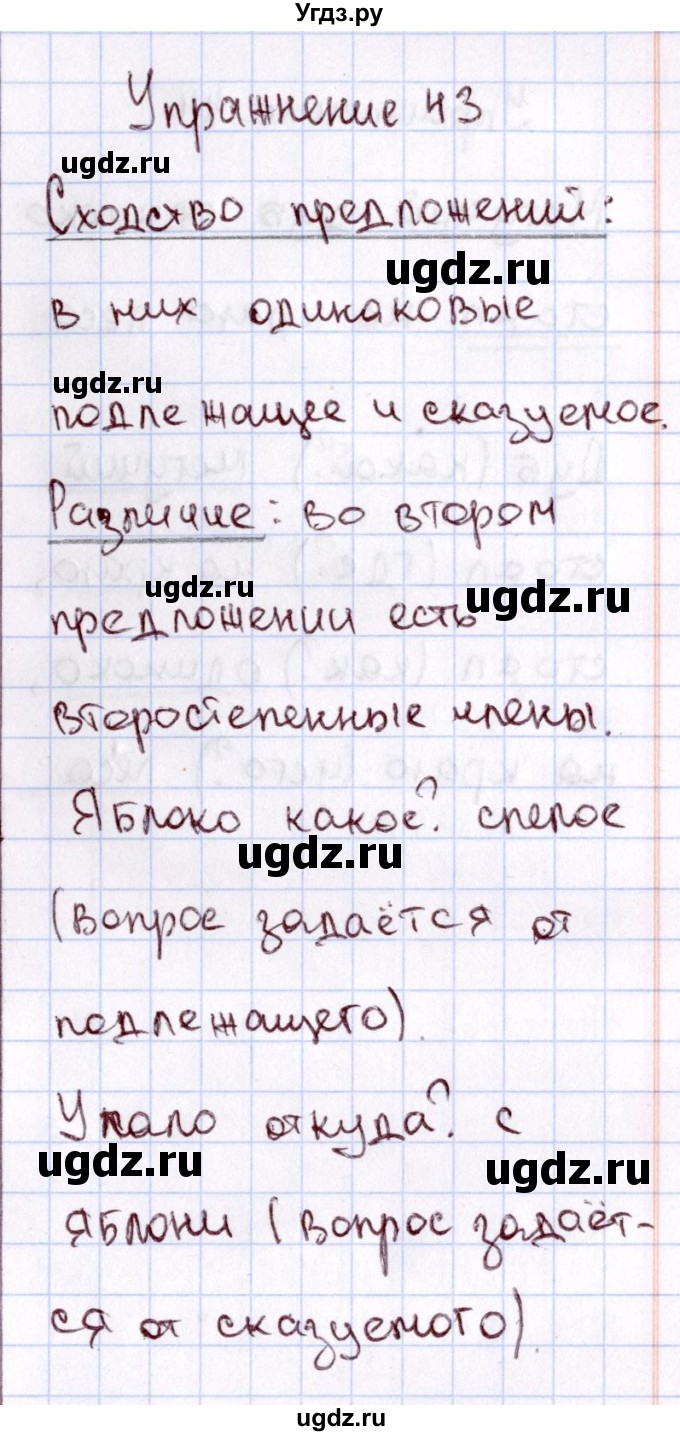 Угдз.ру
Упражнение 43
ugdz.ru
Сходство предложений:
ugdz.ru
в них одинаковые
ugdz.ru
подлежащее и сказуемое.
Различие: во втором
ugdz.ru ugdz.ru
предложении есть
второстепенные члены.
Яблоко какое? спелое
ugdz.ru
(вопрос задаётся от
подлежащего).
Упало откуда? с
ugdz.ru ugdz.ru
яблони (вопрос задаёт-
ся от сказуемого).
ugdz.ru